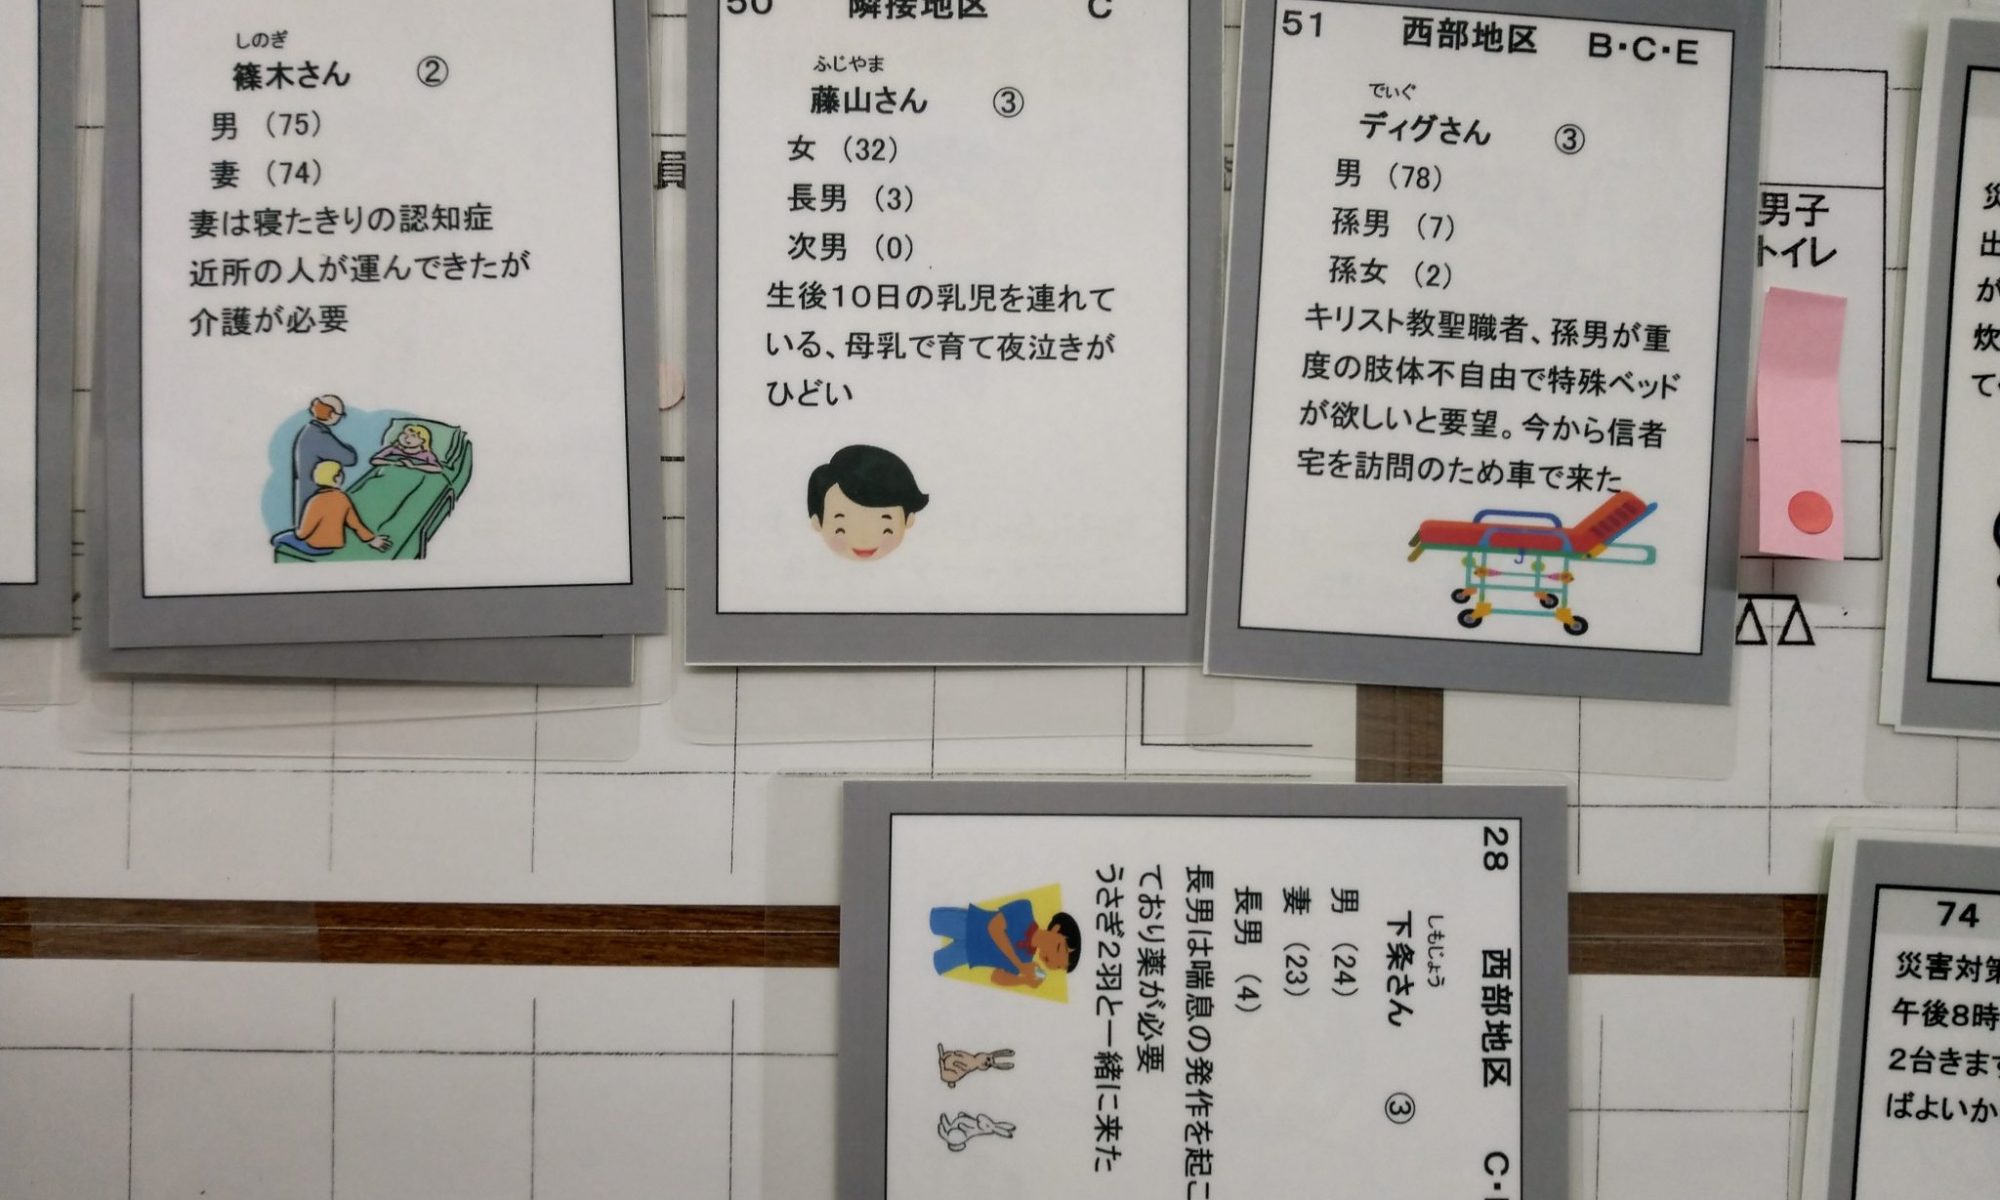 しのぎ
篠木さん ②
男 (75)
妻 (74)
妻は寝たきりの認知症
近所の人が運んできたが
介護が必要
50 隣接地区 C
ふじやま
藤山さん ③
女 (32)
長男 (3)
次男 (0)
生後10日の乳児を連れて
いる、母乳で育て夜泣きが
ひどい
51 西部地区 B・C・E
でぃぐ
ディグさん ③
男 (78)
孫男 (7)
孫女 (2)
キリスト教聖職者、孫男が重
度の肢体不自由で特殊ベッド
が欲しいと要望。今から信者
宅を訪問のため車で来た
員
男子
トイレ
災
出
が
炊
て
28 西部地区 C・
しもじょう
下条さん ③
男 (24)
妻 (23)
長男 (4)
長男は喘息の発作を起こ
ており薬が必要
うさぎ2羽と一緒に来た
74
災害対策
午後8時
2台きます
ばよいか